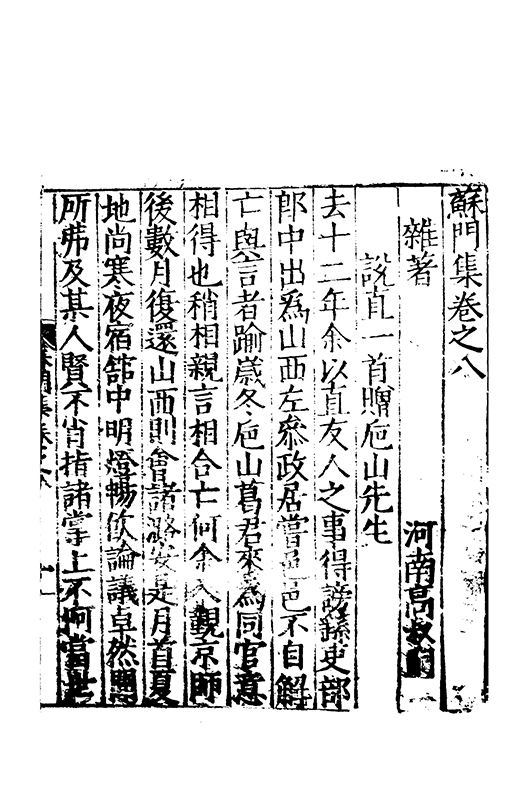 蘇門集卷之八
雜著
河南高叔嗣
說直一首贈巵山先生
去十二年余以直友人之事得謗繇吏部
郎中出爲山西左叅政居嘗邑邑不自解
亡與言者踰歲冬巵山葛君來爲同官意
相得也稍相親言相合亡何余入觀京師
後數月復還山西則會諸潞安是月首夏
地尚寒夜宿舘中明燈暢飲論議卓然
所弗及其人賢不肖指諸掌上不
蘇門集卷之八